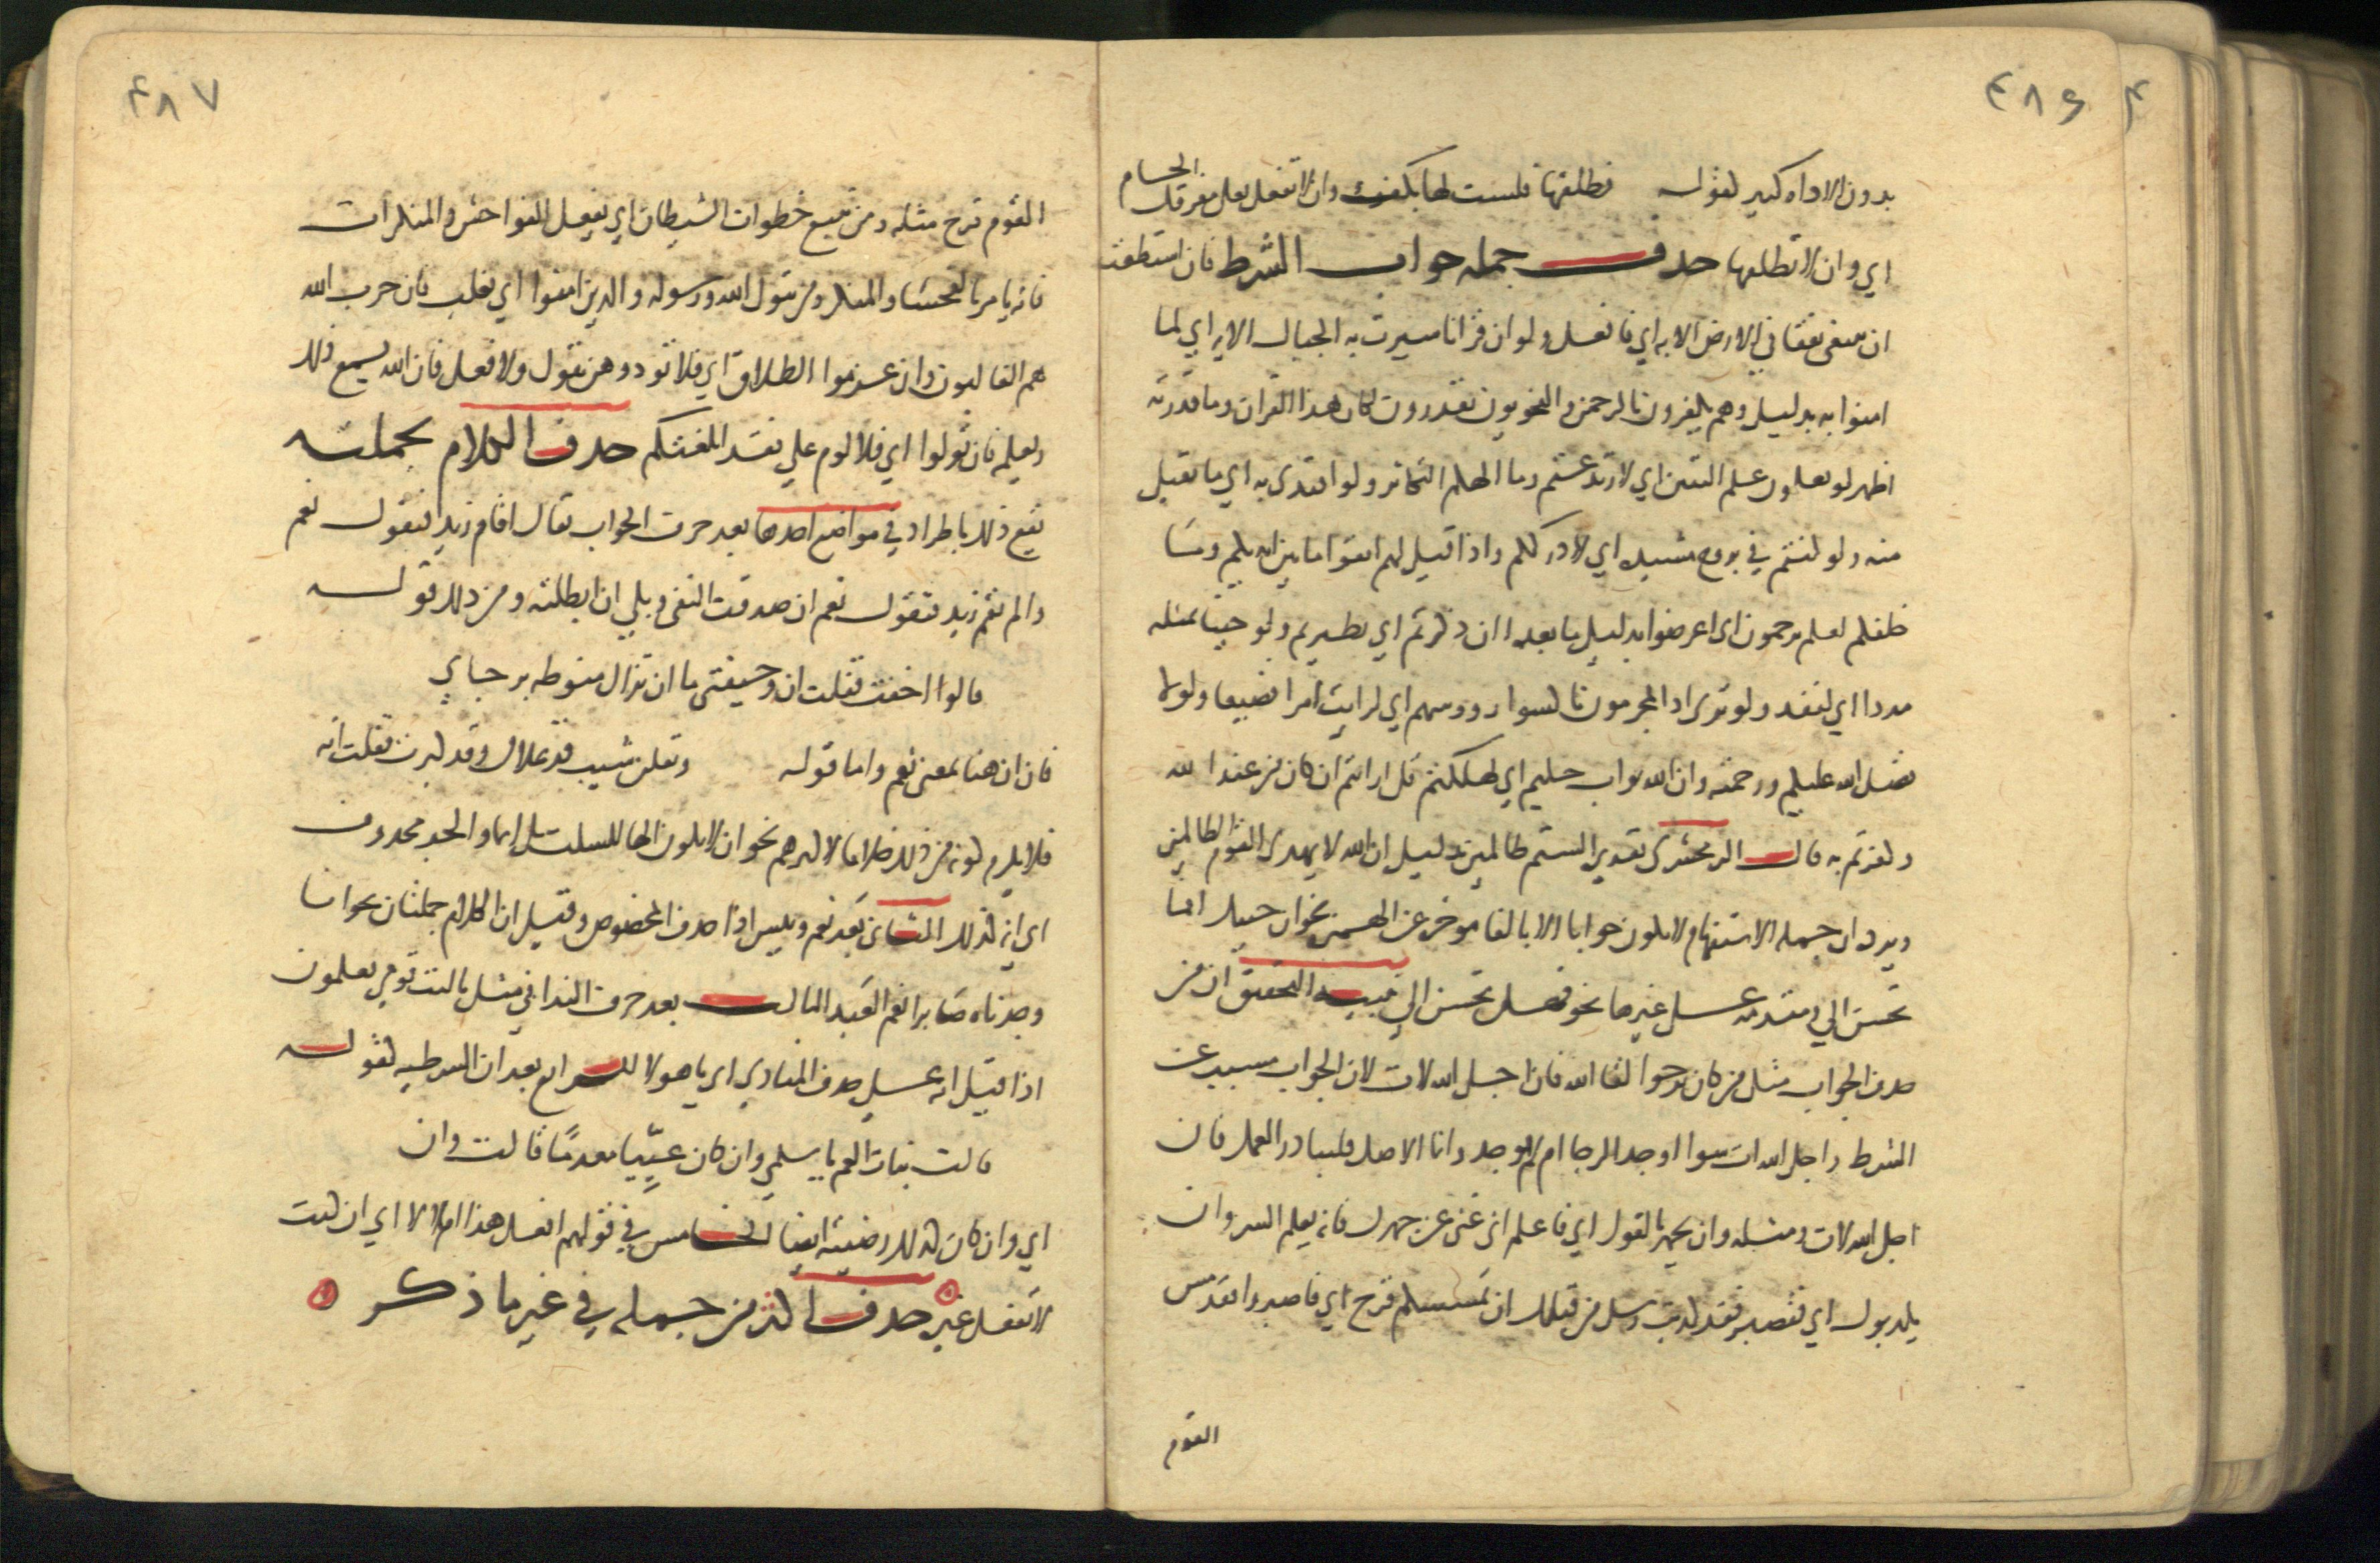 ٤٨٦
بدون الاداه كثير كقوله فطلقها فلست لها بكفئ وان لا تفعل يعل مفرقك الحسام
اي وان لا تطلقها حذف جمله جواب الشرط فان استطعت
ان تبتغي نفقا في الارض الايه اي فافعل ولو ان قرانا سيرت به الجبال الايه اي لما
امنوا به بدليل وهم يكفرون بالرحمن والنحويون يقدرون لكان هذا القران وما قدرته
اظهر لو تعلمون علم اليقين اي لارتدعتم وما الهاكم التكاثر ولو افتدى به اي ما تقبل
منه ولو كنتم في بروج مشيده اي لادرككم واذا قيل لهم اتقوا ما بين ايديكم وما
خلفكم لعلكم ترحمون اي اعرضوا بدليل ما بعده اان ذكرتم اي تطيرتم ولو جئنا بمثله
مددا اي لنفد ولو ترى اذ المجرمون ناكسوا رووسهم اي لرايت امرا فضيعا ولولا
فضل الله عليكم ورحمته وان الله تواب حكيم اي لهلكتم قل ارايتم ان كان من عند الله
وكفرتم به قال الزمخشري تقديره الستم ظالمين بدليل ان الله لا يهدي القوم الظالمين
ويرده ان جمله الاستفهام لا تكون جوابا الا بالفا موخره عن الهمزه نحو ان جيتك افما
تحسن الي ومقدمه على غيرها نحو فهل تحسن الي تنبيه التحقيق ان من
حذف الجواب مثل من كان يرجوا لقا الله فان اجل الله لات لان الجواب مسبب عن
الشرط واجل الله ات سوا اوجد الرجا ام لم يوجد وانما الاصل فليبادر العمل فان
اجل الله لات ومثله وان تجهر بالقول اي فاعلم انه غني عن جهرك فانه يعلم السر وان
يكذبوك اي فتصبر فقد كذبت رسل من قبلك ان يمسسكم قرح اي فاصبروا فقد مس
القوم
٤٨٧
القوم قرح مثله ومن يتبع خطوات الشيطان اي يفعل الفواحش والمنكرات
فانه يامر بالفحشا والمنكر ومن يتول الله ورسوله والذين امنوا اي يغلب فان حزب الله
هم الغالبون وان عزموا الطلاق اي فلا توذوهن بقول ولا فعل فان الله يسمع ذلك
ويعلمه فان تولوا اي فلا لوم علي فقد ابلغتكم حذف الكلام بجملته
يقع ذلك باطراد في مواضع احدها بعد حرف الجواب يقال اقام زيد فيقول نعم
والم يقم زيد فتقول نعم ان صدقت النفي وبلى ان ابطلته ومن ذلك قوله
قالوا اخفت فقلت ان وخيفتي ما ان تزال منوطه برجاي
فان ان هنا بمعنى نعم واما قوله ويقلن شيب قد علاك وقد كبرت فقلت انه
فلا يلزم كونه من ذلك خلافا لاكثرهم نحو ان لا تكون الها للسكت بل اسما والخبر محذوف
اي انه كذلك الثاني بعد نعم وبيس اذا حذف المخصوص وقيل ان الكلام جملتان نحو انا
وجدناه صابرا نعم العبد الثالث بعد حرف الندا في مثل يا ليت قومي يعلمون
اذا قيل انه على حذف المنادي اي يا هولا الرابع بعد ان الشرطيه كقوله
قالت بنات العم يا سلمى وان كان عييا معدما قالت وان
اي وان كان كذلك رضيته ايضا الخامس في قولهم افعل هذا اما لا اي ان كنت
لا تفعل غيره حذف اكثر من جمله في غير ما ذكر